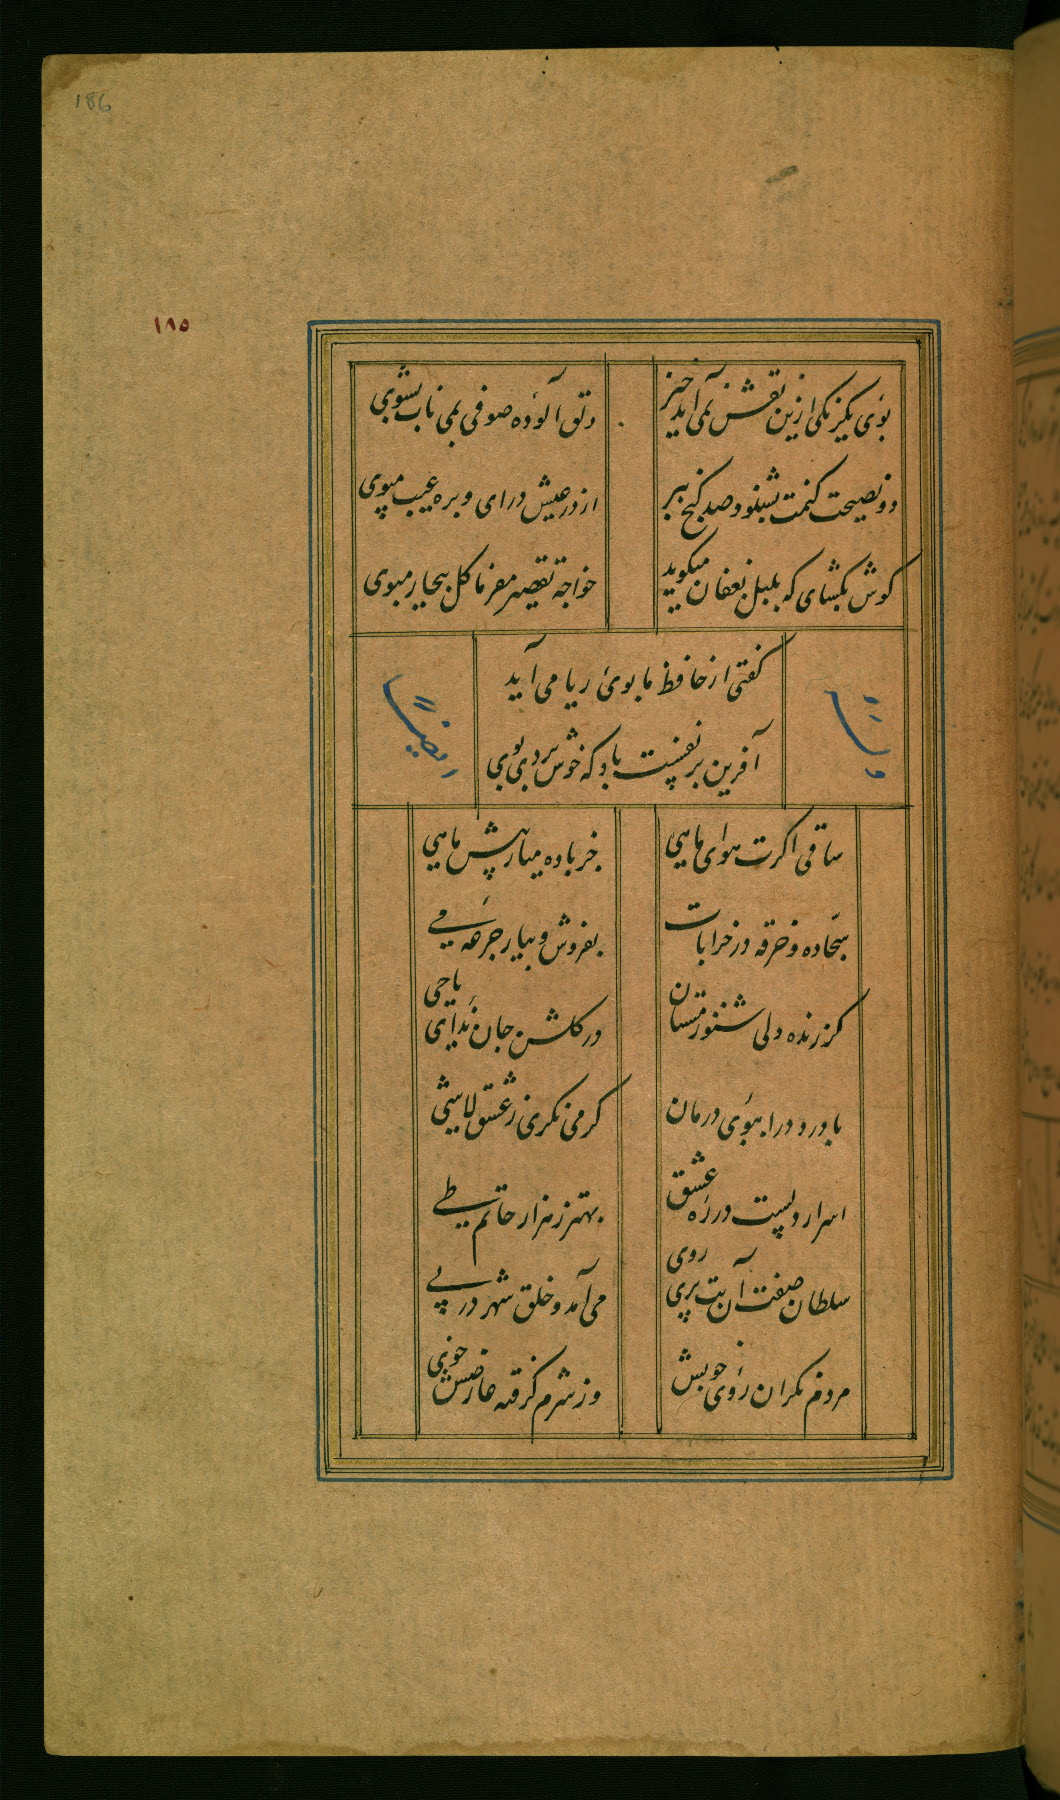 186
۱۸۵
بوی یکرنکی ازین نقش نمی آید خیز
دلق آلوده صوفی بمی ناب بشوی
دو نصیحت کنمت بشنو و صد کنج ببر
از در عیش درای و بره عیب مپوی
کوش بکشای که بلبل بفغان میکوید
خواجه تقصیر مفرما کل بیخار مبوی
کفتی از حافظ ما بوی ریا می آید
آفرین بر نفست باد که خوش بردی بوی
وله
ایضاً
ساقی اکرت هوای ماهی
جز باده میار پیش ماهی
سجاده و خرقه در خرابات
بفروش و بیار جرعه می
کر زنده دلی شنو ز مستان
در کلشن جان ندای یاحی
با درد درا ببوی درمان
کر می نکری ز عشق لاشی
اسرار دلست در ره عشق
بهتر ز هزار حاتم طی
سلطان صفت آن بت پری روی
می آمد و خلق شهر در پی
مردم نکران روی خوبش
وز شرم کرفته عارضش خوی